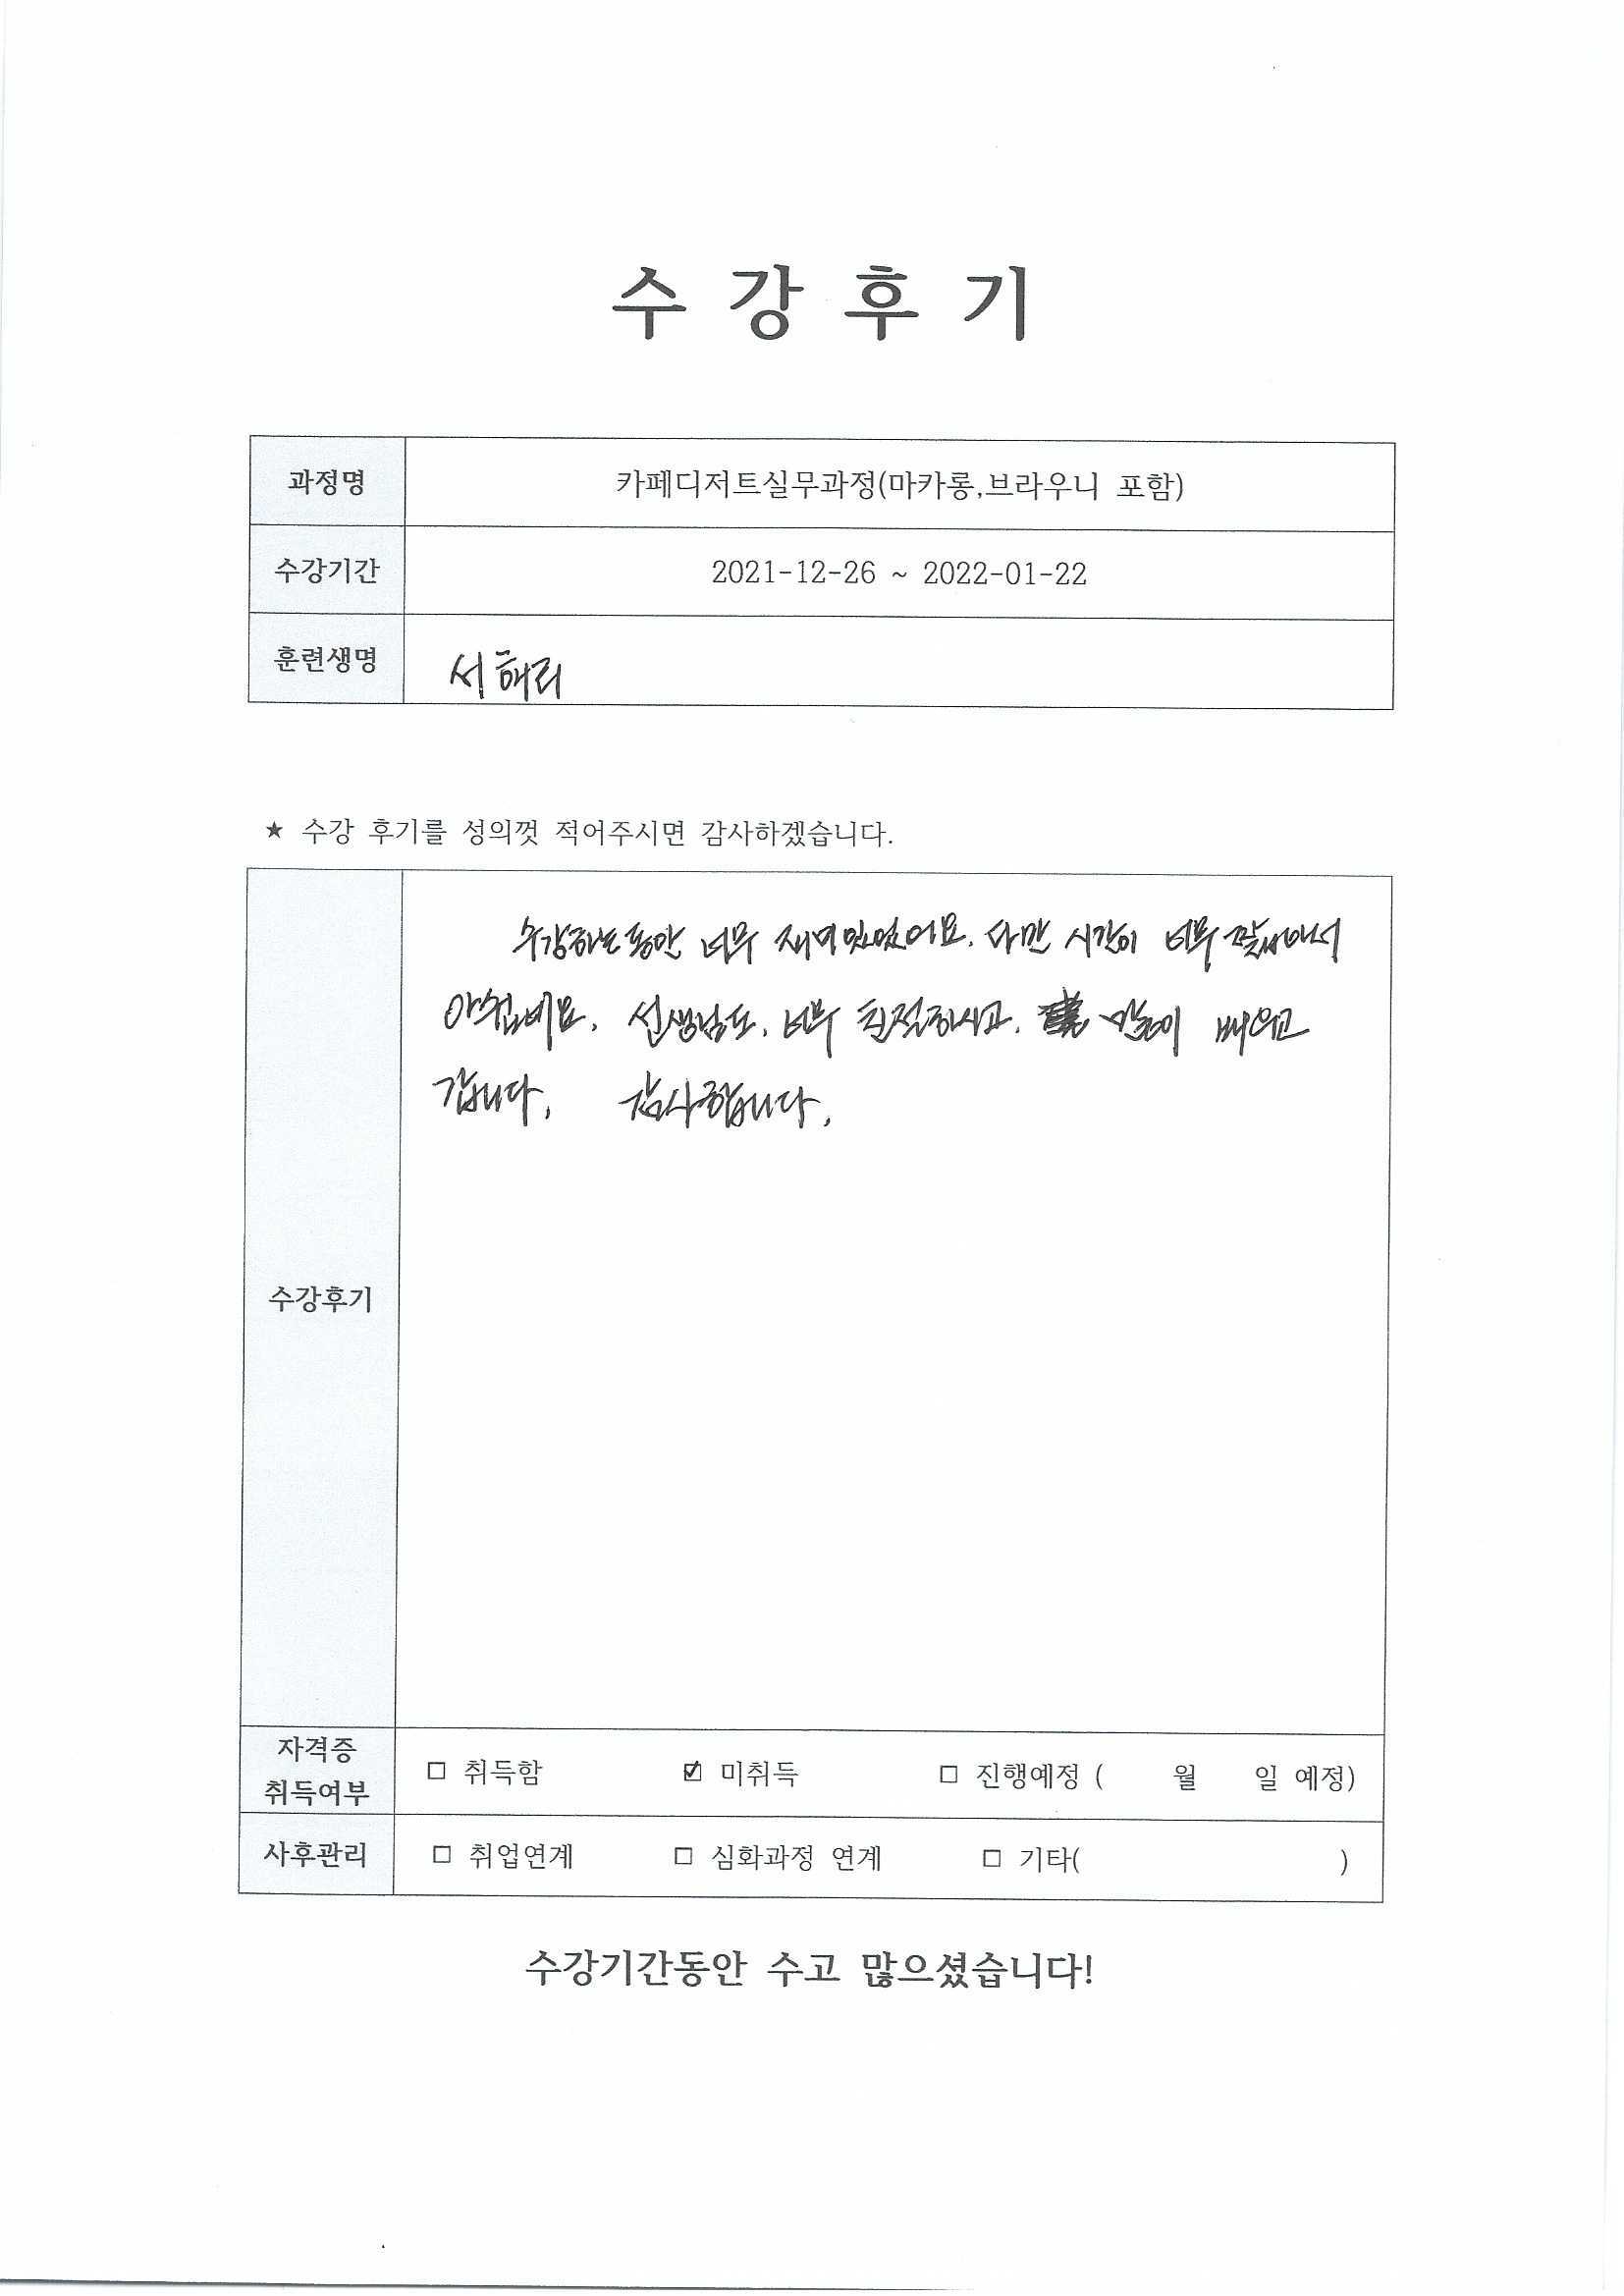 수 강 후 기
과정명 카페디저트실무과정(마카롱,브라우니 포함)
수강기간 2021-12-26 ~ 2022-01-22
훈련생명 서해리
★ 수강 후기를 성의껏 적어주시면 감사하겠습니다.
수강하는동안 너무 재미있었어요. 다만 시간이 너무 짧아서
아쉽네요. 선생님도. 너무 친절하시고. 많이 배우고
갑니다. 감사합니다.
수강후기
자격증
취득여부 □ 취득함 ☑ 미취득 □ 진행예정 ( 월 일 예정)
사후관리 □ 취업연계 □ 심화과정 연계 □ 기타( )
수강기간동안 수고 많으셨습니다!